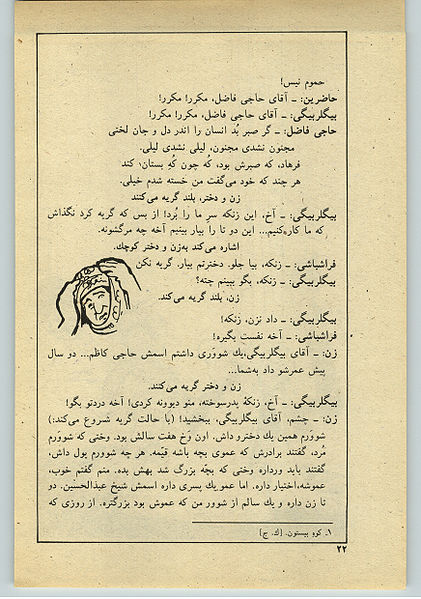 حموم نیس!
حاضرین: ـ آقای حاجی فاضل، مکرر! مکرر!
بیگلربیگی: ـ آقای حاجی فاضل، مکرر! مکرر!
حاجی فاضل: ـ گر صبر بُد انسان را اندر دل و جان لختی
مجنون نشدی مجنون، لیلی نشدی لیلی.
فرهاد، که صبرش بود، کُه چون کُهِ بستان؛ کند
هر چند که خود می‌گفت من خسته شدم خیلی.
زن و دختر، بلند گریه می‌کنند
بیگلربیگی: ـ آخ، این زنکه سرِ ما را بُرد! از بس که گریه کرد نگذاش
که ما کار کنیم... این دو تا را بیار ببینم آخه چه مرگشونه.
اشاره می‌کند به‌زن و دختر کوچك.
فراشباشی: ـ زنکه، بیا جلو. دخترتم بیار. گریه نکن
بیگلربیگی: ـ زنکه، بگو ببینم چته؟
زن، بلند گریه می‌کند.
بیگلربیگی: ـ داد نزن، زنکه!
فراشباشی: ـ آخه نفست بگیره!
زن: ـ آقای بیگلربیگی، یك شووَری داشتم اسمش حاجی کاظم... دو سال
پیش عمرشو داد به‌شما...
زن و دختر گریه می‌کنند.
بیگلربیگی: ـ آخ، زنکهٔ پدرسوخته، منو دیوونه کردی! آخه دردتو بگو!
زن: ـ چشم، آقای بیگلربیگی، ببخشید! (با حالت گریه شروع می‌کند:)
شووَرم همین یك دخترو داش. اون وَخ هفت سالش بود. وختی که شووَرم
مُرد، گفتند برادرش که عموی بچه باشه قیّمه. هر چه شوورم پول داش،
گفتند باید ورداره وختی که بچّه بزرگ شد بهش بده. منم گفتم خوب،
عموشه، اختیار داره. اما عمو یك پسری داره اسمش شیخ عبدالحسین. دو
تا زن داره و یك سالم از شوور من که عموش بود بزرگتره. از روزی که
۱ـ کوهِ بیستون. (ك. ج)
۲۲